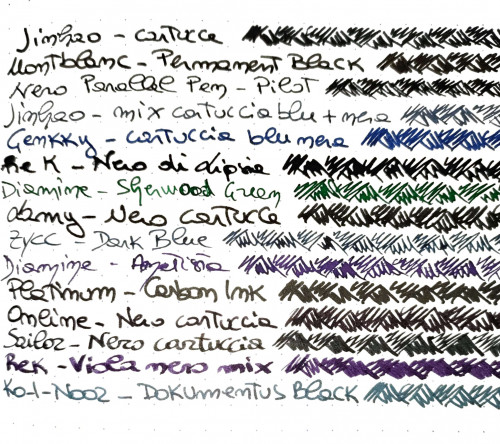 Jinhao - cartucce
Montblanc - Permanent Black
Nero Parallel Pen - Pilot
Jinhao - mix cartuccia blu + nera
Gemkky - cartuccia blu nera
ReK - Nero di
Diamine - Sherwood Green
Lamy - Nero cartucce
Zycc - Dark Blue
Diamine -
Platinum - Carbon Ink
Online - Nero cartuccia
Sailor - Nero cartuccia
ReK - Viola nero mix
Ko-I-Nooz - Dokumentus Black